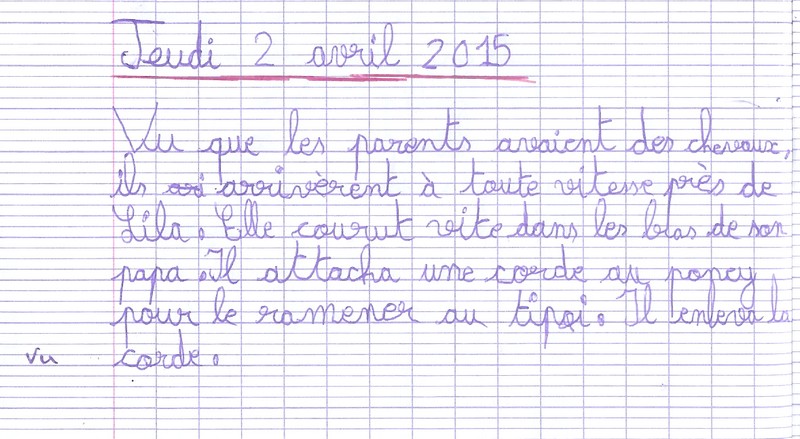 Jeudi 2 avril 2015
Vu que les parents avaient des chevaux,
ils arrivèrent à toute vitesse près de
Lila. Elle courut vite dans les bras de son
papa. Il attacha une corde au poney
pour le ramener au tipi. Il enleva la
vu corde.